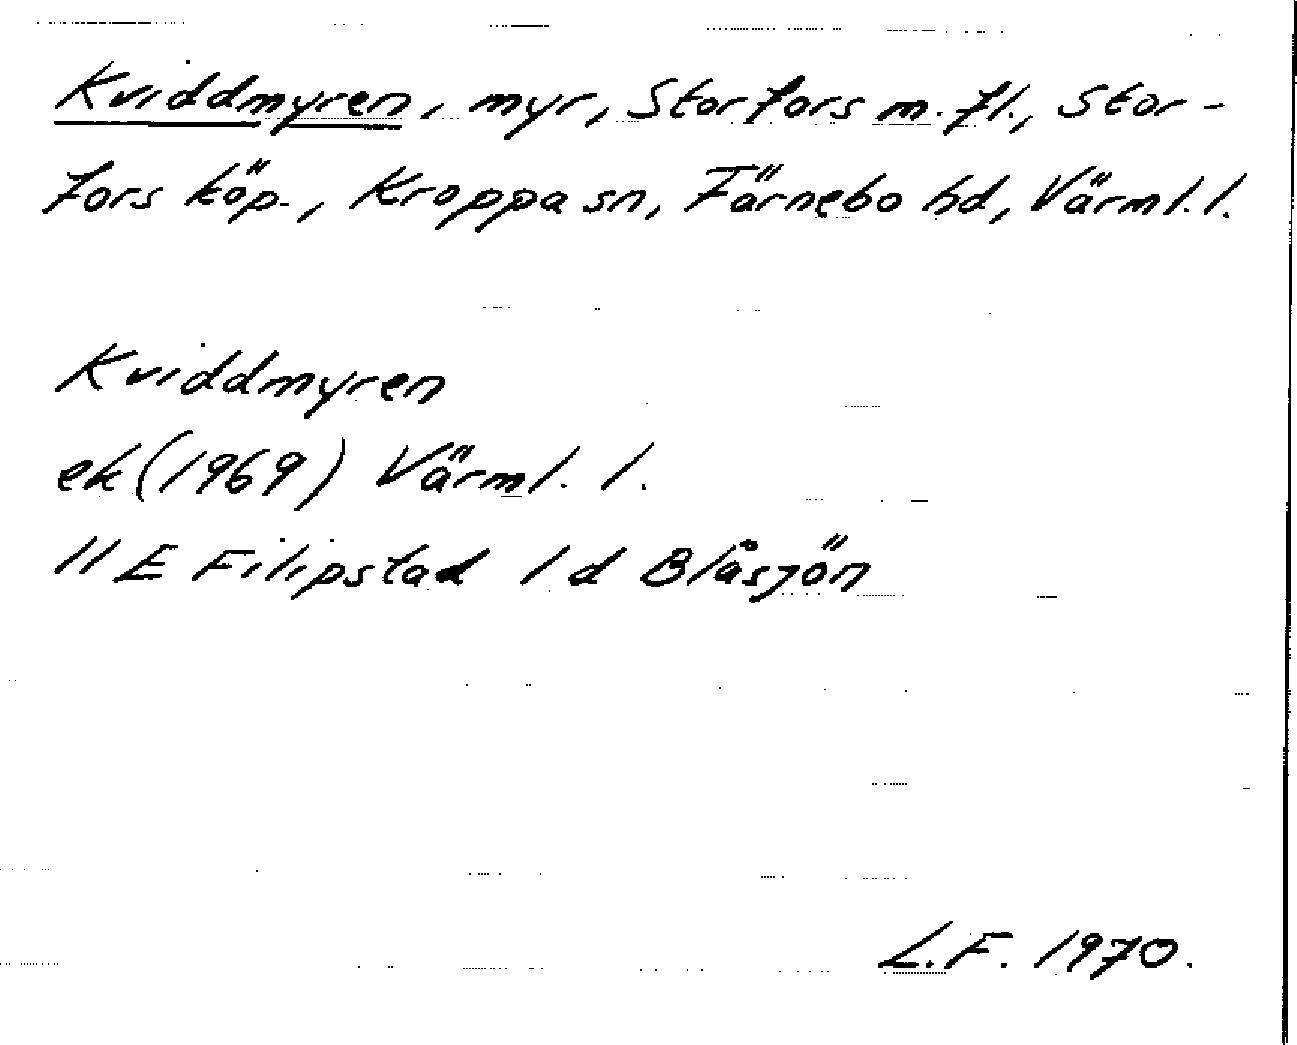 Kviddmyren, myr, Storfors m.fl., Stor-
fors köp., Kroppa sn, Färnebo hd, Värml.l.
Kviddmyren
ek (1969) Värml. l.
11 E Filipstad 1 d Blåsjön
L.F. 1970.